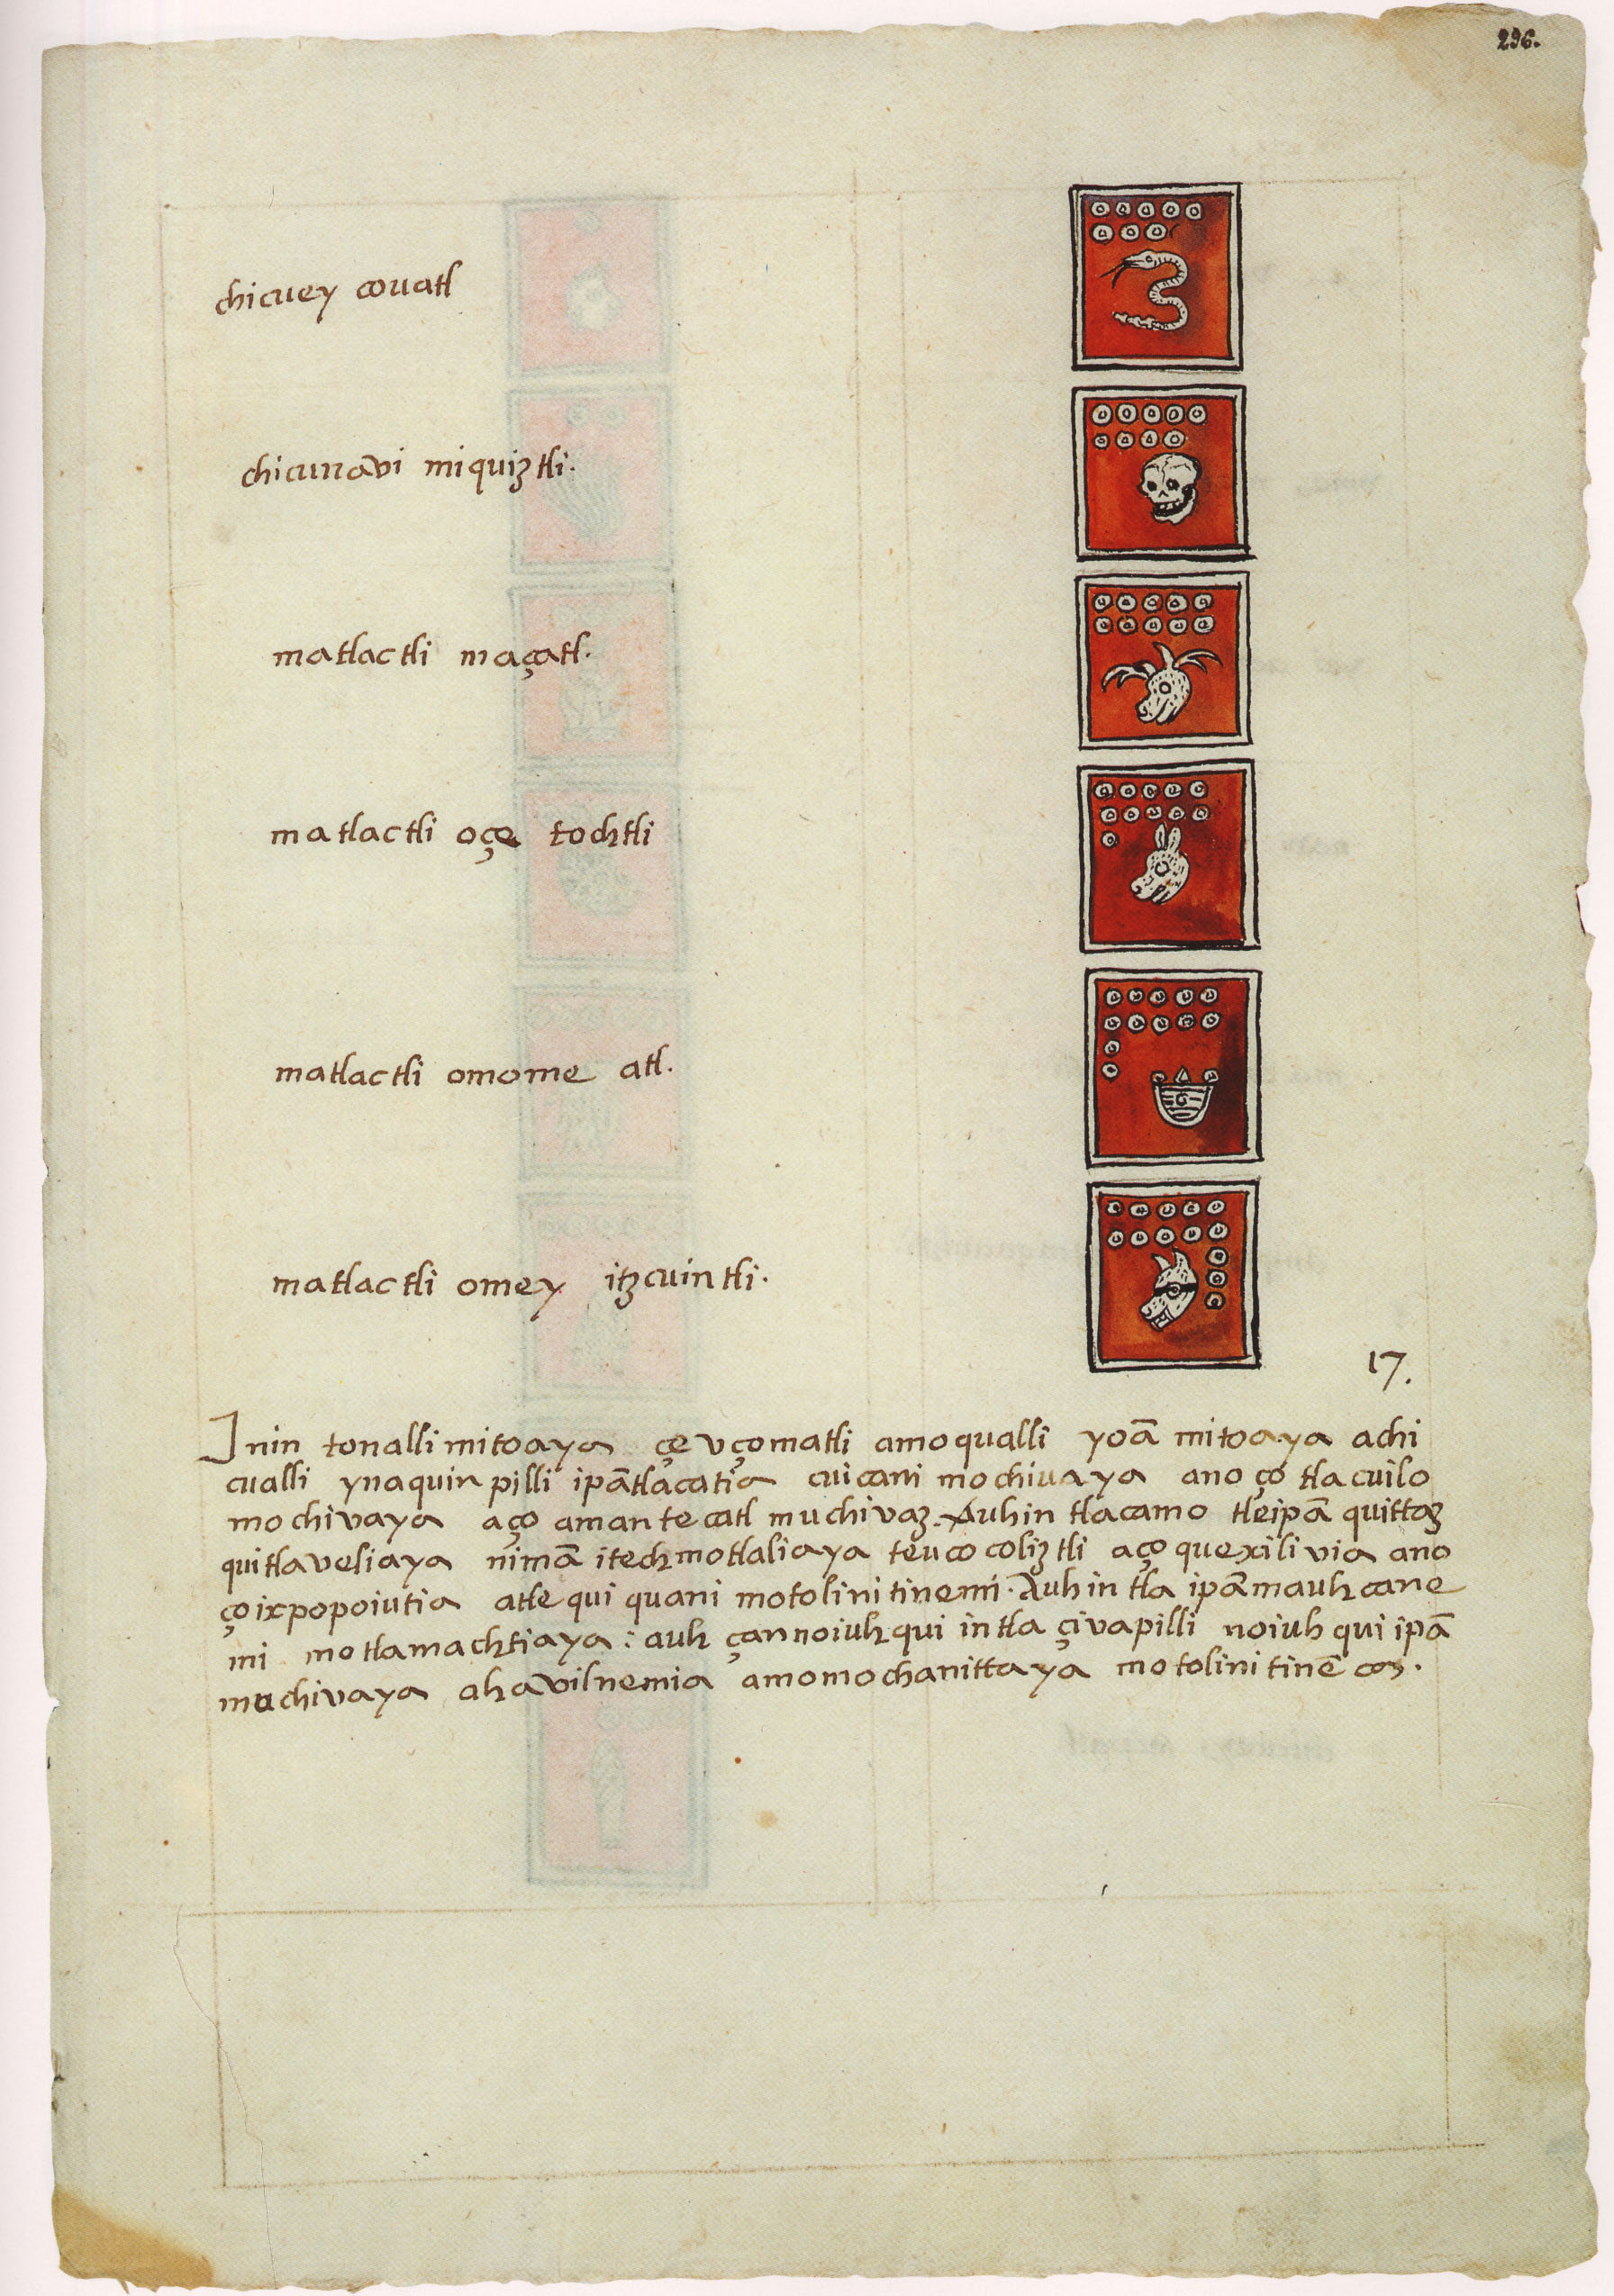 296.
chicuey couatl
chicunavi miquiztli.
matlactli maçatl.
matlactli oçe tochtli
matlactli omome atl.
matlactli omey itzcuintli.
17.
Inin tonalli mitoaya çe vçomatli amo qualli yoā mitoaya achi
cualli yn aquin pilli ipā tlacatia cuicani mochiuaya ano ço tlacuilo
mochivaya aço amantecatl muchivaz. Auh in tlacamo tleipā quittaz
quitlaveliaya nimā itech motlaliaya teucocoliztli aço quexilivia ano
ço ixpopoiutia atle qui quani motolinitinemi. Auh in tla ipā mauhcane
mi motlamachtiaya: auh çan no iuhqui intla çivapilli no iuhqui ipā
muchivaya ahavilnemia amo mochanittaya motolinitinē